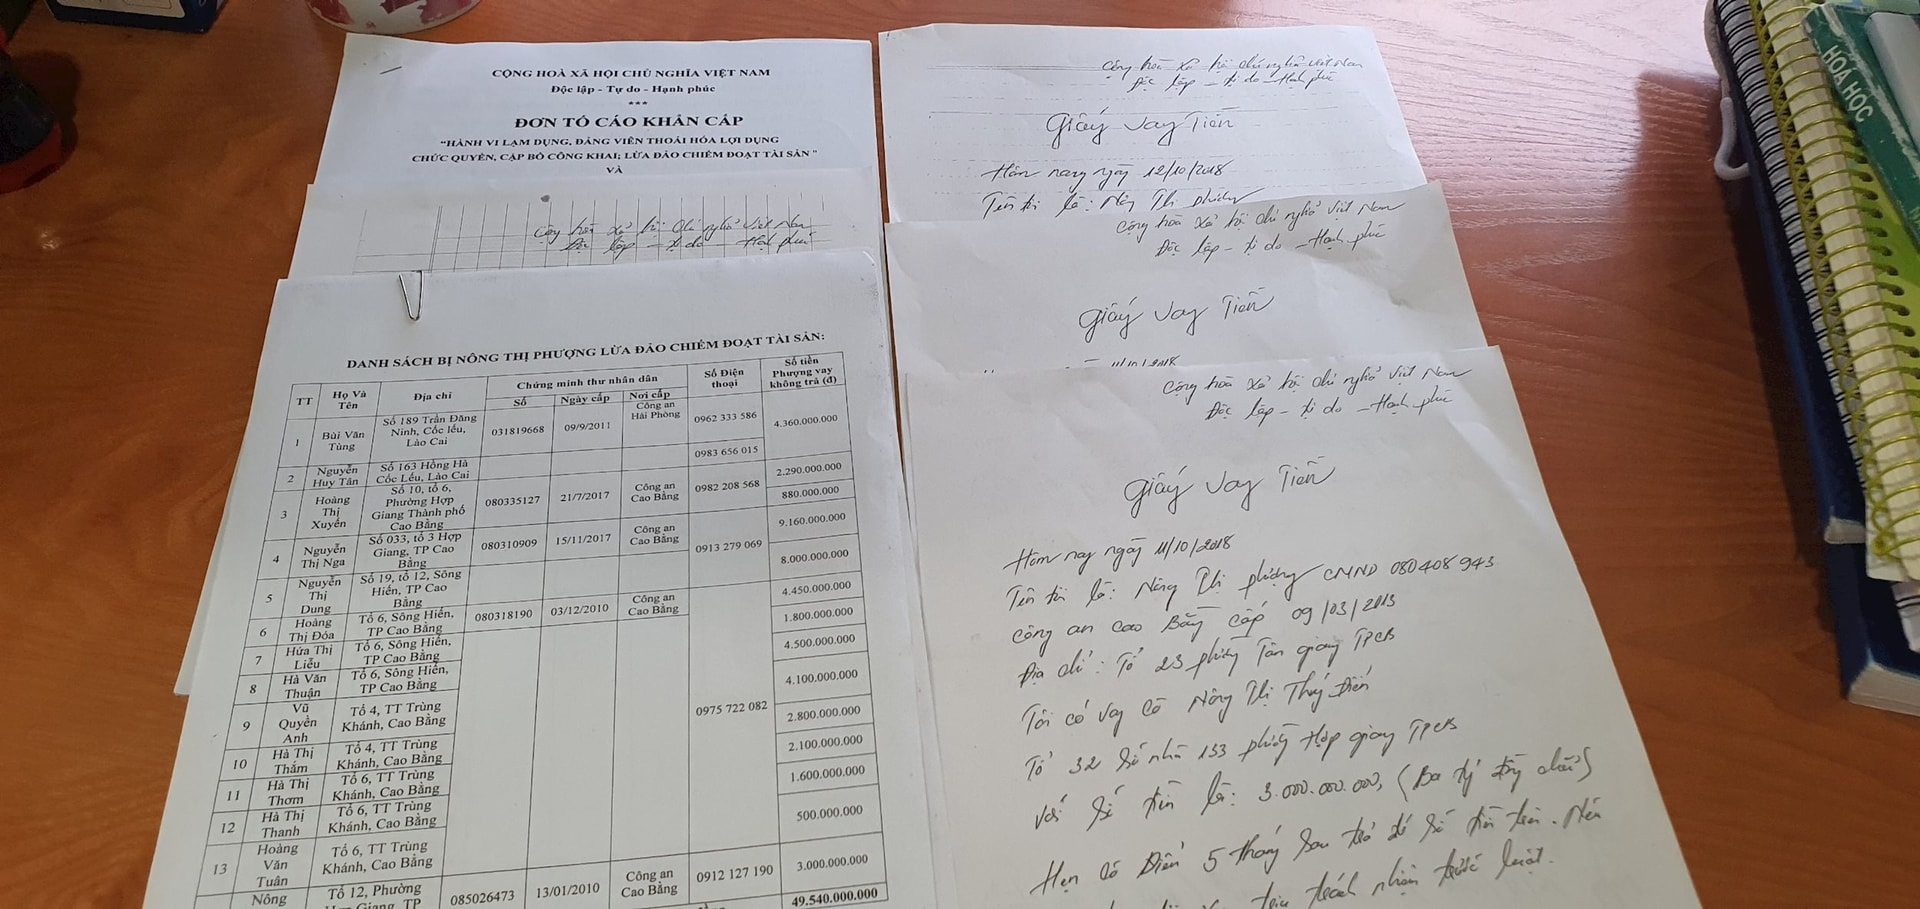 CỘNG HOÀ XÃ HỘI CHỦ NGHĨA VIỆT NAM
Độc lập - Tự do - Hạnh phúc
***
ĐƠN TỐ CÁO KHẨN CẤP
"HÀNH VI LẠM DỤNG, ĐẢNG VIÊN THOÁI HÓA LỢI DỤNG
CHỨC QUYỀN, CẶP BỒ CÔNG KHAI; LỪA ĐẢO CHIẾM ĐOẠT TÀI SẢN"
VÀ
Cộng hòa xã hội chủ nghĩa Việt Nam
Độc lập - tự do - Hạnh phúc
DANH SÁCH BỊ NÔNG THỊ PHƯỢNG LỪA ĐẢO CHIẾM ĐOẠT TÀI SẢN:
TT Họ Và Tên Địa chỉ Chứng minh thư nhân dân Số Điện thoại Số tiền Phượng vay không trả (đ)
Số Ngày cấp Nơi cấp
1 Bùi Văn Tùng Số 189 Trần Đăng Ninh, Cốc lếu, Lào Cai 031819668 09/9/2011 Công an Hải Phòng 0962 333 586 4.360.000.000
2 Nguyễn Huy Tân Số 163 Hồng Hà Cốc Lếu, Lào Cai 0983 656 015 2.290.000.000
3 Hoàng Thị Xuyến Số 10, tổ 6, Phường Hợp Giang Thành phố Cao Bằng 080335127 21/7/2017 Công an Cao Bằng 0982 208 568 880.000.000
4 Nguyễn Thị Nga Số 033, tổ 3 Hợp Giang, TP Cao Bằng 080310909 15/11/2017 Công an Cao Bằng 0913 279 069 9.160.000.000
5 Nguyễn Thị Dung Số 19, tổ 12, Sông Hiến, TP Cao Bằng 8.000.000.000
6 Hoàng Thị Đóa Tổ 6, Sông Hiến, TP Cao Bằng 080318190 03/12/2010 Công an Cao Bằng 4.450.000.000
7 Hứa Thị Liễu Tổ 6, Sông Hiến, TP Cao Bằng 1.800.000.000
8 Hà Văn Thuận Tổ 6, Sông Hiến, TP Cao Bằng 4.500.000.000
9 Vũ Quyền Anh Tổ 4, TT Trùng Khánh, Cao Bằng 0975 722 082 4.100.000.000
10 Hà Thị Thắm Tổ 4, TT Trùng Khánh, Cao Bằng 2.800.000.000
11 Hà Thị Thơm Tổ 6, TT Trùng Khánh, Cao Bằng 2.100.000.000
12 Hà Thị Thanh Tổ 6, TT Trùng Khánh, Cao Bằng 1.600.000.000
13 Hoàng Văn Tuân Tổ 6, TT Trùng Khánh, Cao Bằng 500.000.000
Nông Tổ 12, Phường Giang, TP 085026473 13/01/2010 Công an Cao Bằng 0912 127 190 3.000.000.000
49.540.000.000
Cộng hòa xã hội chủ nghĩa Việt Nam
Độc lập - tự do - Hạnh phúc
Giấy vay Tiền
Hôm nay ngày 12/10/2018
Tên tôi là: Nông Thị Phượng
Cộng hòa xã hội chủ nghĩa Việt Nam
Độc lập - tự do - Hạnh phúc
Giấy vay Tiền
11/10/2018
Cộng hòa xã hội chủ nghĩa Việt Nam
Độc lập - tự do - Hạnh phúc
Giấy vay Tiền
Hôm nay ngày 11/10/2018
Tên tôi là: Nông Thị Phượng CMND 080408943
Công an Cao Bằng cấp 09/03/2013
Địa chỉ: Tổ 23 phường Tân giang TPCB
Tôi có vay cô Nông Thị Thúy Điến
Tổ 32 số nhà 153 phường Hợp giang TPCB
Với số tiền là: 3.000.000.000, (Ba tỷ đồng chẵn)
Hẹn cô Điến 5 tháng sau trả đủ số tiền trên. Nếu
trách nhiệm trước luật.
HÓA HỌC